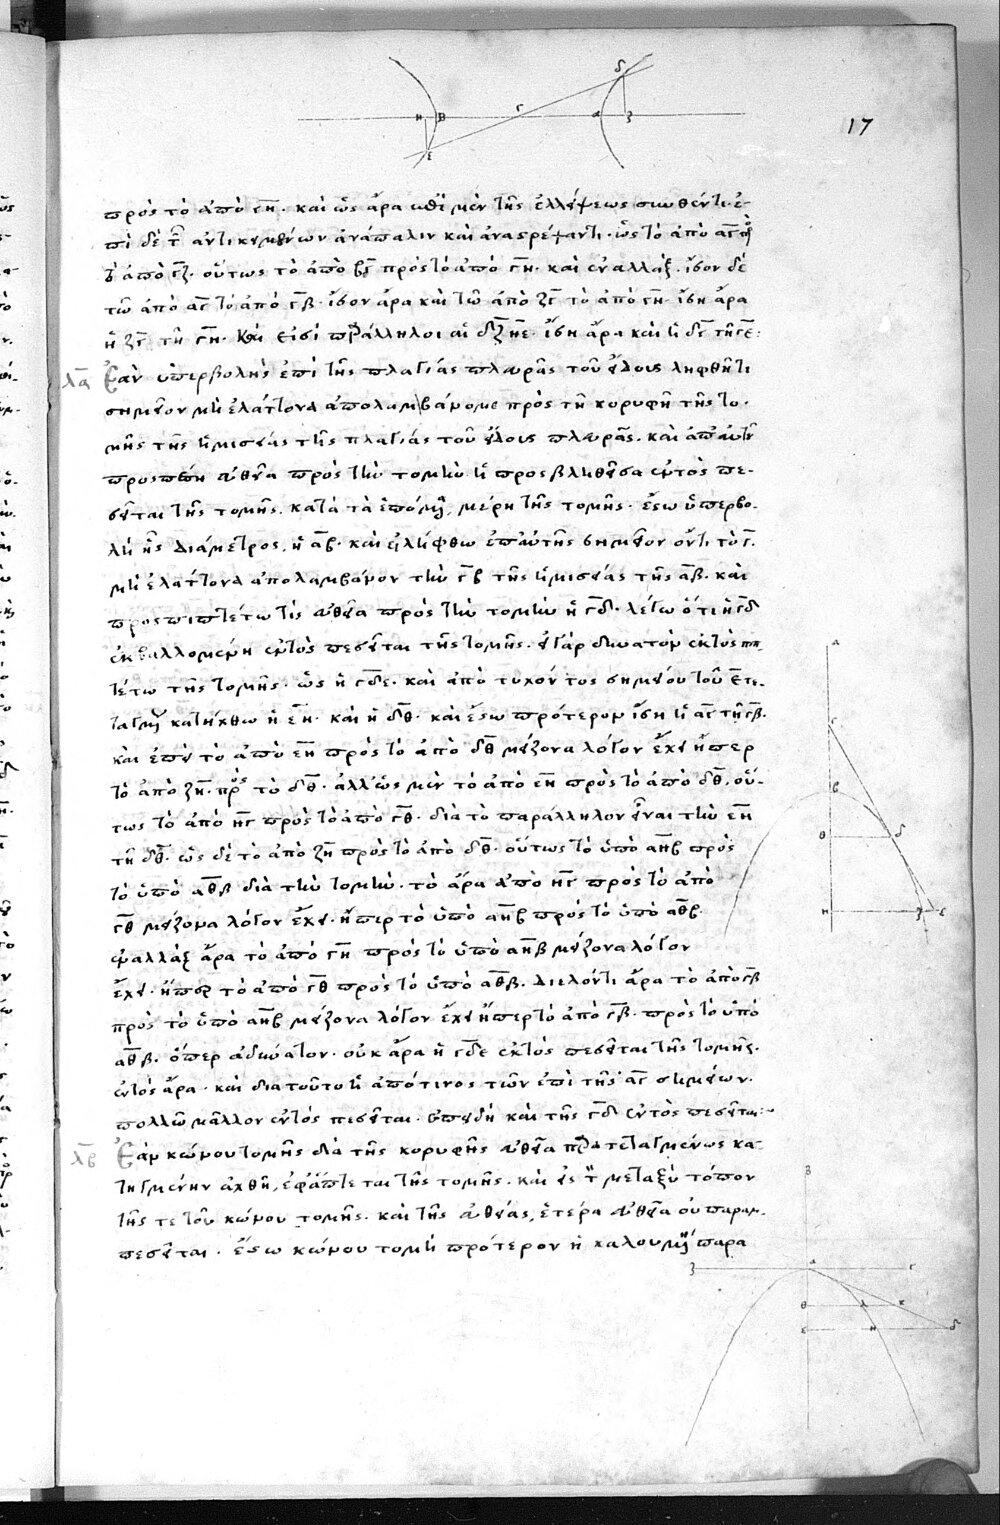 17
πρὸς τὸ ἀπὸ γη· καὶ ὡς ἄρα ἐπὶ μὲν τῆς ἐλλείψεως συνθέντι· ἐ-
πὶ δὲ τ̅ ἀντικειμένων ἀνάπαλιν καὶ ἀναστρέψαντι· ὡς τὸ ἀπὸ αγ πρὸς
τὸ ἀπὸ γζ· οὕτως τὸ ἀπὸ βγ πρὸς τὸ ἀπὸ γη· καὶ ἐναλλάξ· ἴσον δὲ
τῶ ἀπὸ αγ τὸ ἀπὸ γβ· ἴσον ἄρα καὶ τῶ ἀπὸ ζγ τὸ ἀπὸ γη· ἴση ἄρα
ἡ ζγ τῆ γη· καί εἰσι παράλληλοι αἱ δζ ηε· ἴση ἄρα καὶ ἡ δγ τῆ γε:
λα Ἐὰν ὑπερβολῆς ἐπὶ τῆς πλαγίας πλευρᾶς τοῦ εἴδους ληφθῆ τι
σημεῖον μὴ ἐλάττονα ἀπολαμβάνομε πρὸς τῆ κορυφῆ τῆς το-
μῆς τῆς ἡμισείας τῆς πλαγίας τοῦ εἴδους πλευρᾶς· καὶ ἀπ' αὐτοῦ
προσπέση εὐθεῖα πρὸς τὴν τομὴν ἡ προσβληθεῖσα ἐντὸς πε-
σεῖται τῆς τομῆς· κατὰ τὰ ἑπόμενα μέρη τῆς τομῆς· ἔστω ὑπερβο-
λὴ ἧς διάμετρος, ἡ αβ· καὶ εἰλήφθω ἐπ' αὐτῆς σημεῖον ὄντι τὸ γ.
μὴ ἐλάττονα ἀπολαμβάνον τὴν γβ τῆς ἡμισείας τῆς αβ· καὶ
προσπιπτέτω τις εὐθεῖα πρὸς τὴν τομὴν ἡ γδ· λέγω ὅτι ἡ γδ
ἐκβαλλομένη ἐντὸς πεσεῖται τῆς τομῆς· εἰ γὰρ δυνατὸν ἐκτὸς πιπ-
τέτω τῆς τομῆς· ὡς ἡ γδε· καὶ ἀπὸ τυχόντος σημείου τοῦ ε τε-
ταγμένως κατήχθω ἡ εη· καὶ ἡ δθ· καὶ ἔστω πρότερον ἴση ἡ αγ τῆ γβ.
καὶ ἐπεὶ τὸ ἀπὸ εη πρὸς τὸ ἀπὸ δθ μείζονα λόγον ἔχει ἤπερ
τὸ ἀπὸ ζη· πρὸς τὸ δθ· ἀλλ' ὡς μὲν τὸ ἀπὸ εη πρὸς τὸ ἀπὸ δθ, οὕ-
τως τὸ ἀπὸ ηγ πρὸς τὸ ἀπὸ γθ· διὰ τὸ παράλληλον εἶναι τὴν εη
τῆ δθ· ὡς δὲ τὸ ἀπὸ ζη πρὸς τὸ ἀπὸ δθ· οὕτως τὸ ὑπὸ αηβ πρὸς
τὸ ὑπὸ αθβ διὰ τὴν τομήν· τὸ ἄρα ἀπὸ ηγ πρὸς τὸ ἀπὸ
γθ μείζονα λόγον ἔχει· ἤπερ τὸ ὑπὸ αηβ πρὸς τὸ ὑπὸ αθβ.
ἐναλλὰξ ἄρα τὸ ἀπὸ γη πρὸς τὸ ὑπὸ αηβ μείζονα λόγον
ἔχει· ἤπερ τὸ ἀπὸ γθ πρὸς τὸ ὑπὸ αθβ· διελόντι ἄρα τὸ ἀπὸ γβ
πρὸς τὸ ὑπὸ αηβ μείζονα λόγον ἔχει ἤπερ τὸ ἀπὸ γβ· πρὸς τὸ ὑπὸ
αθβ· ὅπερ ἀδύνατον· οὐκ ἄρα ἡ γδε ἐκτὸς πεσεῖται τῆς τομῆς·
ἐντὸς ἄρα· καὶ διὰ τοῦτο ἡ ἀπό τινος τῶν ἐπὶ τῆς αγ σημείων·
πολλῶ μᾶλλον ἐντὸς πεσεῖται· ἐπειδὴ καὶ τῆς γδ ἐντὸς πεσεῖται:~
λβ Ἐὰν κώνου τομῆς διὰ τῆς κορυφῆς εὐθεῖα παρὰ τεταγμένως κα-
τηγμένην ἀχθῆ, ἐφάπτεται τῆς τομῆς· καὶ εἰς τ̅ μεταξὺ τόπον
τῆς τε τοῦ κώνου τομῆς· καὶ τῆς εὐθείας, ἑτέρα εὐθεῖα οὐ παρεμ-
πεσεῖται· ἔστω κώνου τομὴ πρότερον ἡ καλουμένη παρα